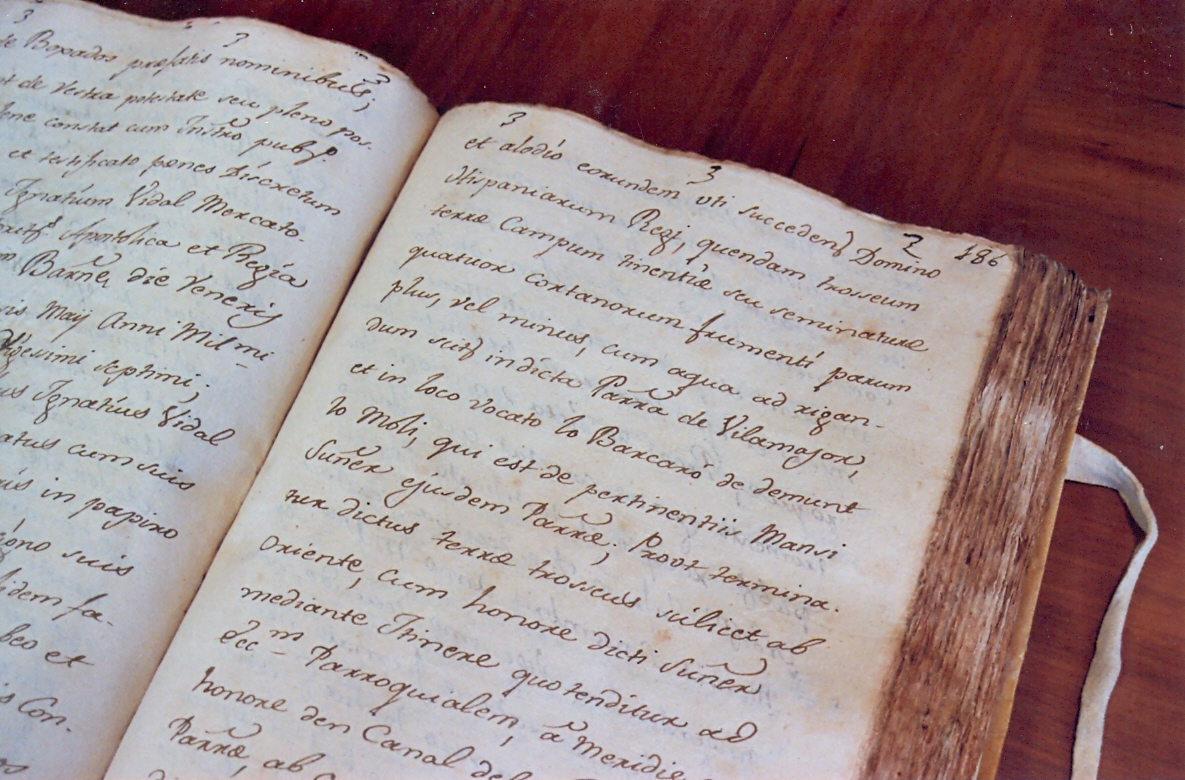 de Boxados prefatis nominibus;
ot de Vestra potestate seu pleno pos-
bene constat cum Instro pubco
et testificato penes Discretum
Ignatium Vidal Mercato-
Apostolica et Regia
Barñe, die Veneris
Maÿ Anni Mil-mi
septimi;
Ignatius Vidal
cum suis
in papiro
suis
idem fa-
et
Con-
186
et alodio eorundem uti succedend Domino
Hispaniarum Regi, quendam trosseum
terræ Campum tinentiæ seu seminaturæ
quatuor cortanorum frumenti parum
plus, vel minus, cum aqua ad rigan-
dum suis in dicta Parra de Vilamajor,
et in loco vocato lo Barcaró de demunt
lo Moli, qui est de pertinentiis Mansi
Suñer ejusdem Parræ; Prout termina-
tur dictus terræ trosseus scilicet ab
Oriente, cum honore dicti Suñer
mediante Itinere quo tenditur ad
Ecc-m Parroquialem, à Meridie
honore den Canal
Parræ, ab